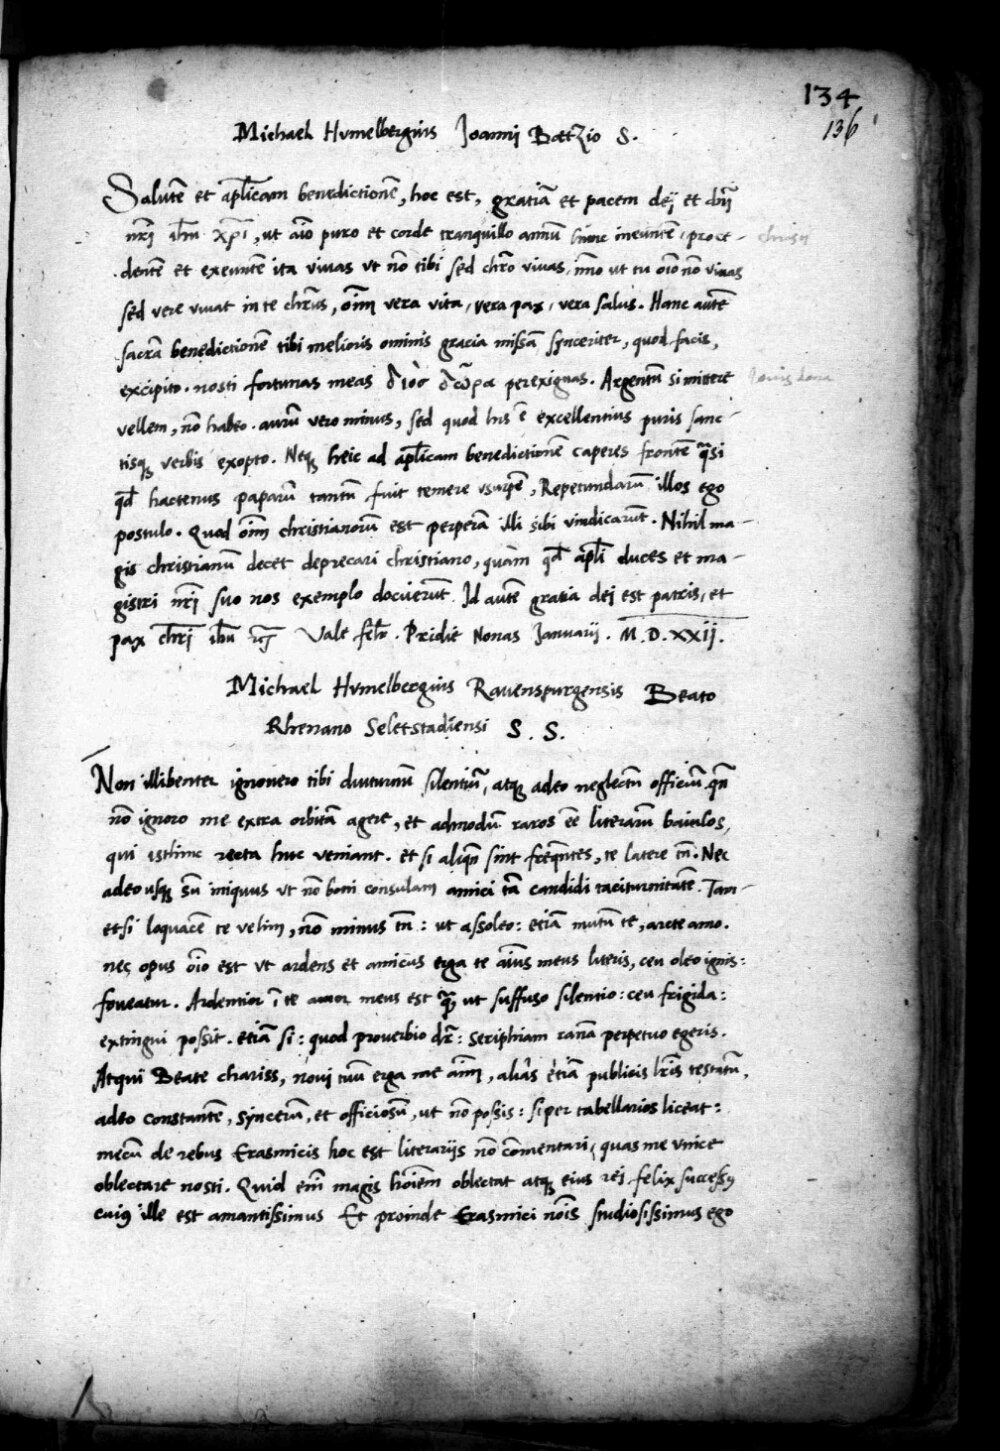 134
136
Michael Hvmelbergius Joanni Bætzio S.
Salutē et aplicam benedictionē, hoc est, gratiā et pacem dej et dnj
nrj ihu xpi, ut aīo puro et corde tranquillo annū hunc ineuntē, proce-
dentē et exeuntē ita viuas vt nō tibi sed chro viuas, īmo ut tu oīo nō viuas
sed vere viuat in te chrus, oīm vera vita, vera pax, vera salus. Hanc autē
sacrā benedictionē tibi melioris ominis gracia missā synceriter, quod facis,
excipito. nosti fortunas meas διὸσ δῶρα perexiguas. Argentū si mittere
vellem, nō habeo. aurū vero minus, sed quod his ē excellentius puris sanc-
tisq verbis exopto. Neq heic ad aplicam benedictionē caperes frontē qsi
qd hactenus paparū tantū fuit temere vsurpē, Repetundarū illos ego
postulo. Quod oīm christianorū est perperā illi sibi vindicarūt. Nihil ma-
gis christianū decet deprecari christiano, quàm qd apli duces et ma-
gistri nrj suo nos exemplo docuerūt. Id autē gratia dej est patris, et
pax chrj ihu Vale felr. Pridie Nonas Januarij. M.D.XXij.
Michael Hvmelbergius Rauenspurgensis Beato
Rhenano Seletstadiensi S. S.
Non illibenter ignouero tibi diuturnū silentiū, atq adeo neglectū officiū. qn
nō ignoro me extra orbitā agere, et admodū raros ēe literarū baiulos,
qui isthinc recta huc veniant. et si aliqn sint freqntes, te latere tn. Nec
adeo usq sū iniquus vt nō boni consulam amici tā candidi taciturnitatē. Tam-
etsi loquacē te velim, nō minus tn: ut assoleo: etiā mutū te, arcte amo.
nec opus oīo est vt ardens et amicus erga te aīus meus literis, ceu oleo ignis:
foueatur. Ardentior ī te amor meus est q, ut suffuso silentio: ceu frigida:
extingui possit. etiā si: quod prouerbio dr: Seriphiam ranā perpetuo egeris.
Atqui Beate chariss, noui tuū erga me aīm, aliàs etiā publicis lris testatū,
adeo constantē, syncerū, et officiosū, ut nō possis: si per tabellarios liceat:
mecū de rebus Erasmicis hoc est literarijs nō cōmentari, quas me vnice
oblectare nosti. Quid eni magis hoīem oblectat atq eius rej felix successus
cuiꝰ ille est amantissimus Et proinde Erasmici nōis studiosissimus ego